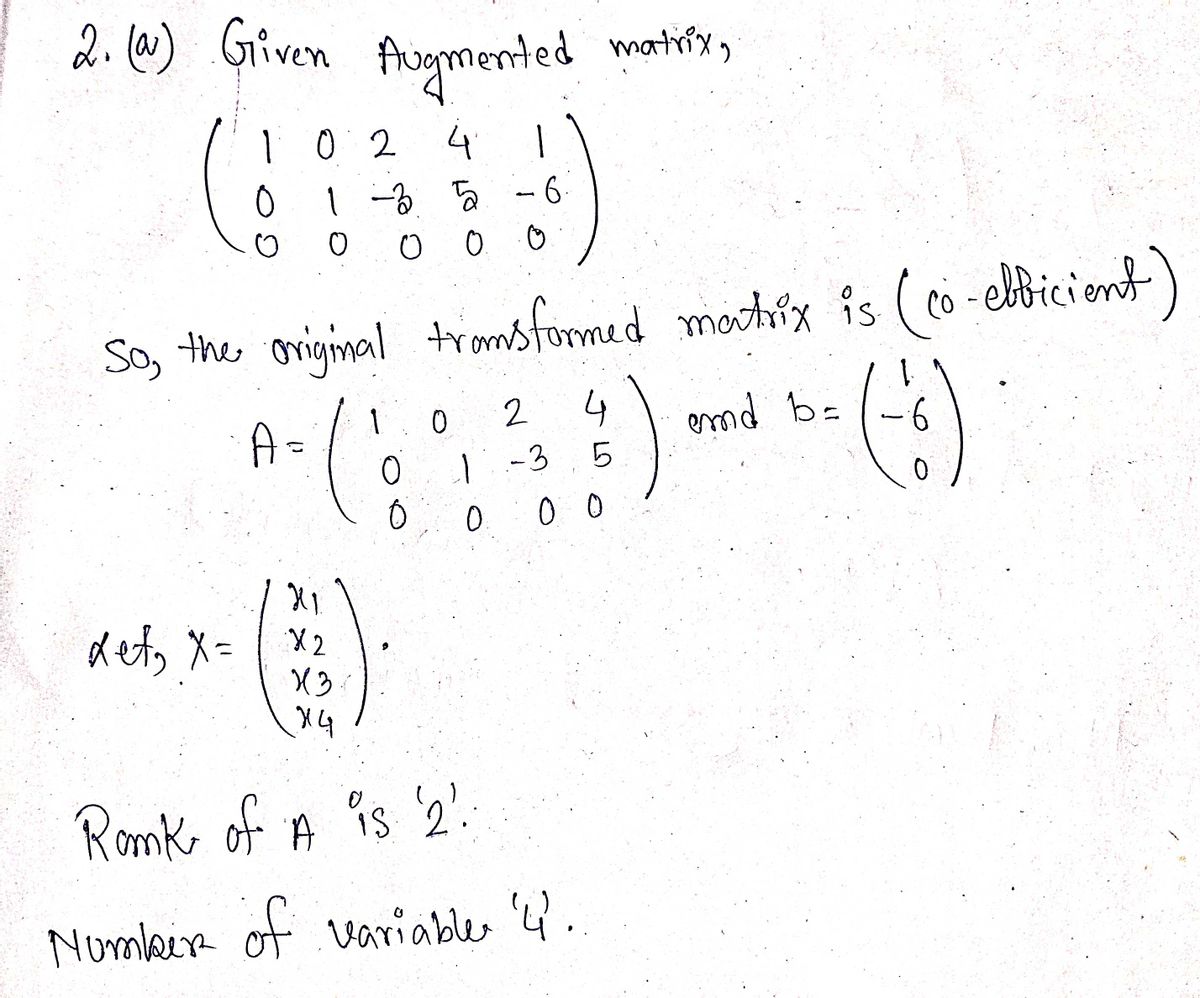 2. (a) Given Augmented matrix,
1 0 2 4 1
0 1 -3 5 -6
0 0 0 0 0
So, the original transformed matrix is (co-efficient)
A = ( 1 0 2 4 ) and b = ( 1
0 1 -3 5 -6
0 0 0 0 0 )
Let, X = ( x1
x2
x3
x4 ) .
Rank of A is '2'.
Number of variable '4'.